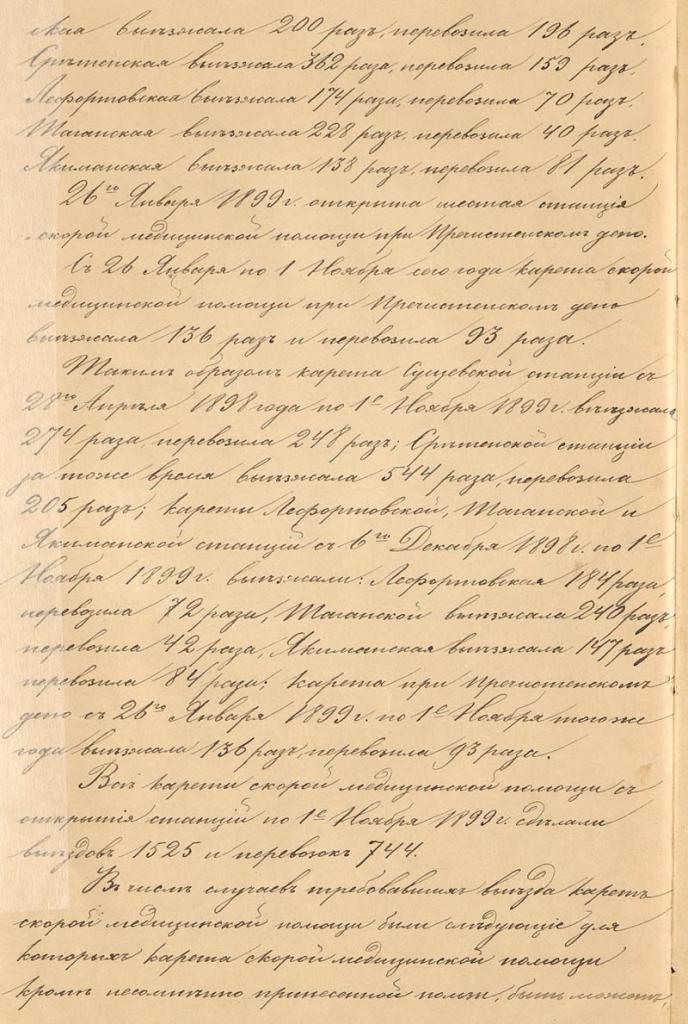 ская выѣзжала 200 разъ, перевозила 196 разъ,
Срѣтенская выѣзжала 362 раза, перевозила 159 разъ,
Лефортовская выѣзжала 174 раза, перевозила 70 разъ,
Таганская выѣзжала 228 разъ, перевозила 40 разъ,
Якиманская выѣзжала 138 разъ, перевозила 81 разъ.
26го Января 1899 г. открыта шестая станція
скорой медицинской помощи при Пречистенскомъ депо.
Съ 26 Января по 1 Ноября сего года карета скорой
медицинской помощи при Пречистенскомъ депо
выѣзжала 136 разъ и перевозила 93 раза.
Такимъ образомъ карета Сущевской станціи съ
28го Апрѣля 1898 года по 1е Ноября 1899 г. выѣзжала
274 раза, перевозила 248 разъ; Срѣтенской станціи
за тоже время выѣзжала 544 раза, перевозила
205 разъ; кареты Лефортовской, Таганской и
Якиманской станцій съ 6го Декабря 1898 г. по 1е
Ноября 1899 г. выѣзжали: Лефортовская 184 раза,
перевозила 72 раза, Таганской выѣзжала 240 разъ,
перевозила 42 раза, Якиманская выѣзжала 147 разъ
перевозила 84 раза; карета при Пречистенскомъ
депо съ 26го Января 1899 г. по 1е Ноября того же
года выѣзжала 136 разъ, перевозила 93 раза.
Всѣ кареты скорой медицинской помощи съ
открытія станцій по 1е Ноября 1899 г. сдѣлали
выѣздовъ 1525 и перевозокъ 744.
Въ числѣ случаевъ требовавшихъ выѣзда каретъ
скорой медицинской помощи были слѣдующіе для
которыхъ карета скорой медицинской помощи
кромѣ несомнѣнно принесенной пользы, быть можетъ,